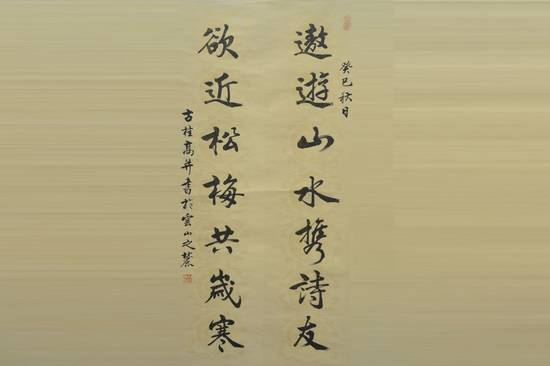 癸巳秋日
遨遊山水携詩友
欲近松梅共歲寒
古桂高井書於雲山之麓